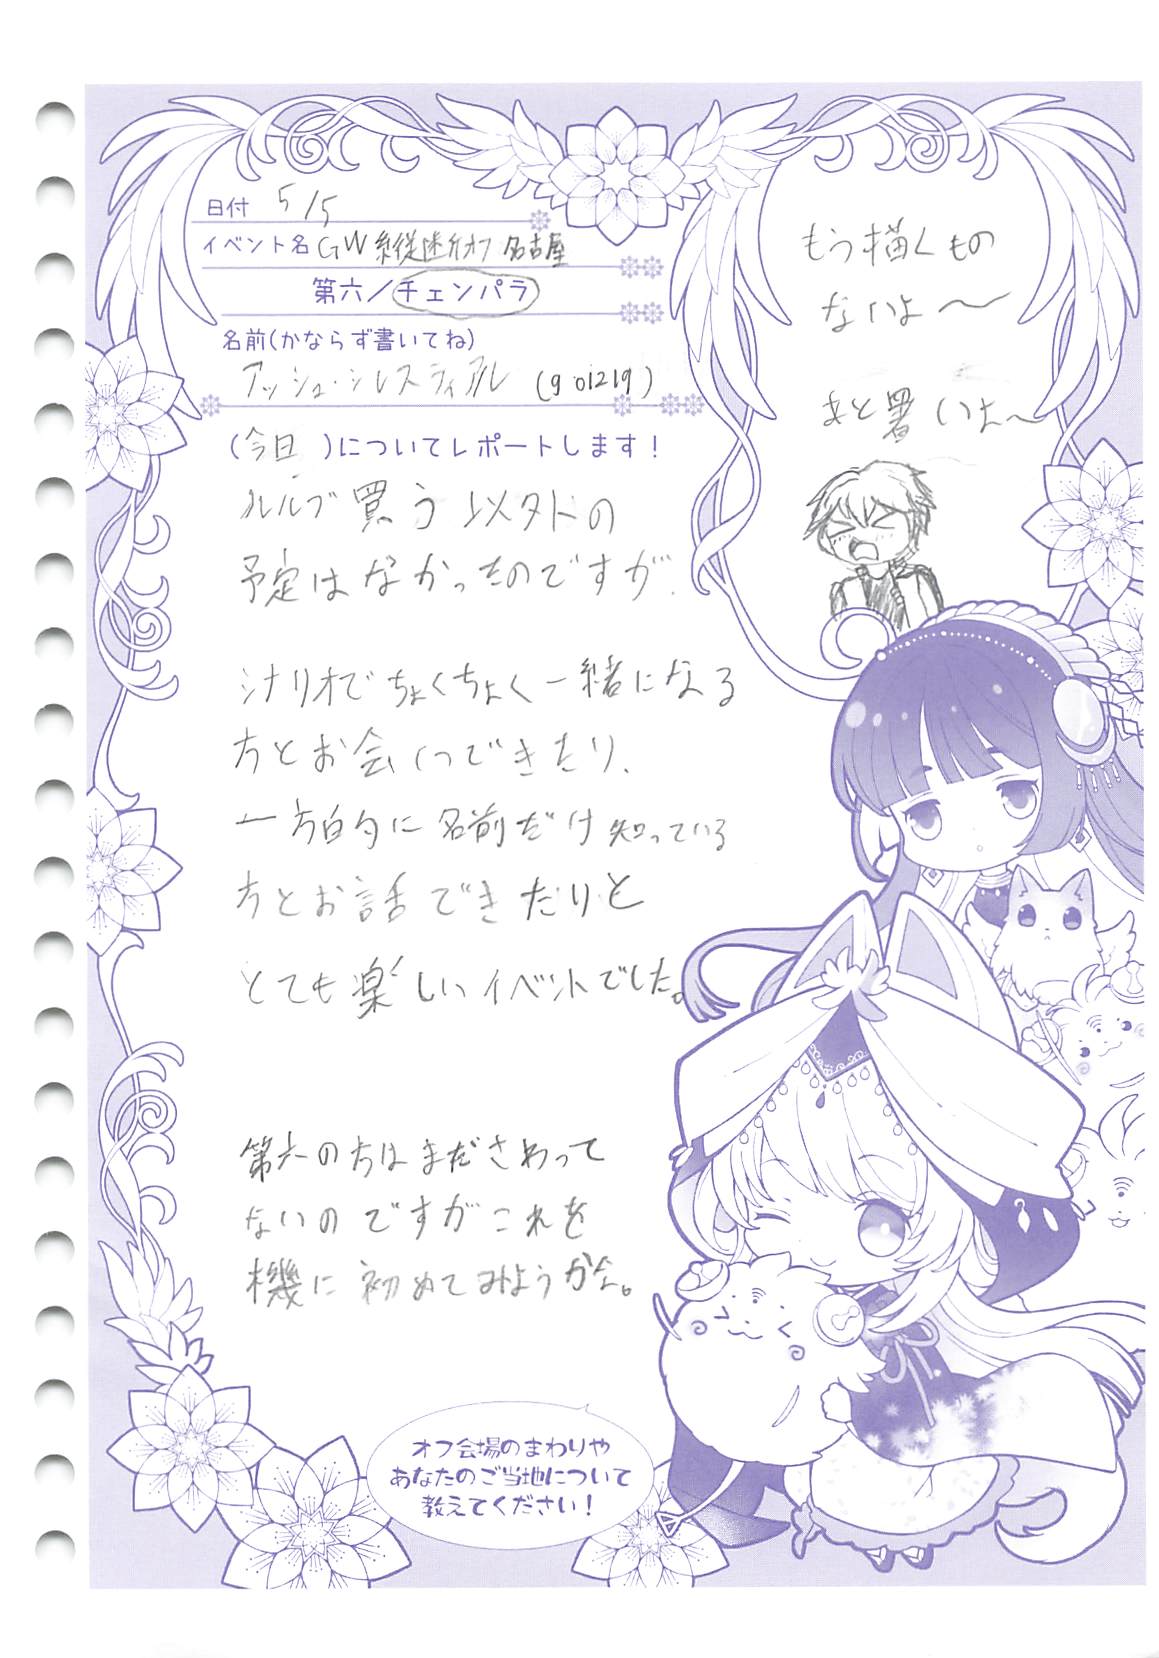 日付 5/5
イベント名 GW 縦断オフ 名古屋
第六/チェンパラ
名前(かならず書いてね)
アッシュ・シレスティアル (g01219)
(今日)についてレポートします!
ルルブ買う以外の
予定はなかったのですが、
シナリオでちょくちょく一緒になる
方とお会いできたり、
一方的に名前だけ知っている
方とお話できたりと
とても楽しいイベントでした。
第六の方はまださわって
ないのですがこれを
機に初めてみようかな。
もう描くもの
ないよ〜
あと署いよ〜
オフ会場のまわりや
あなたのご当地について
教えてください!